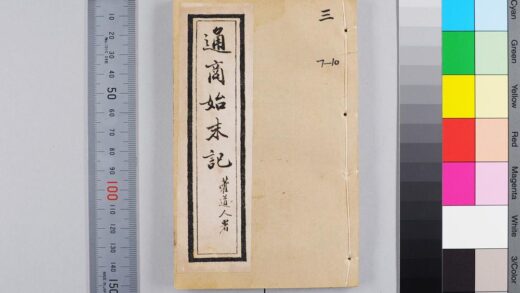 三
7—10
通商始末記
道人署
10
20
30
40
50
60
70
80
90
100
110
120
130
140
150
Cyan
Green
Yellow
Red
Magenta
White
3/Color